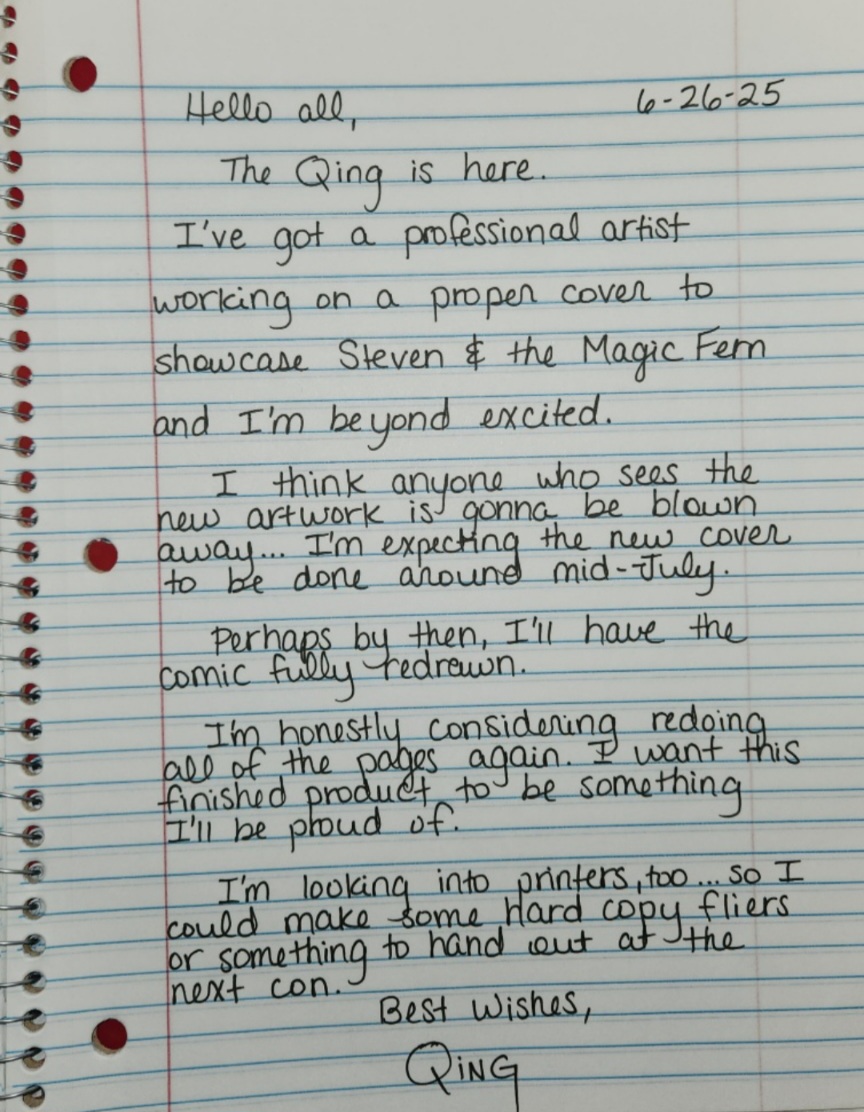 Hello all, 6-26-25
The Qing is here.
I've got a professional artist
working on a proper cover to
showcase Steven & the Magic Fern
and I'm beyond excited.
I think anyone who sees the
new artwork is gonna be blown
away... I'm expecting the new cover
to be done around mid-July.
Perhaps by then, I'll have the
comic fully redrawn.
I'm honestly considering redoing
all of the pages again. I want this
finished product to be something
I'll be proud of.
I'm looking into printers, too... so I
could make some hard copy fliers
or something to hand out at the
next con.
Best Wishes,
QiNG